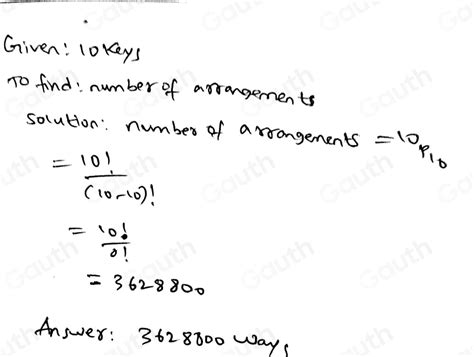 Given: 10 keys
To find: number of arrangements
solution: number of arrangements = 10P10
= 10!
(10-10)!
= 10!
0!
= 3628800
Answer: 3628800 ways
Gauth
Gauth
Gauth
Gauth
Gauth
Gauth
Gauth
Gauth